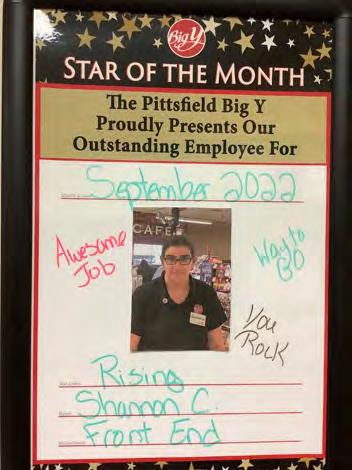 Big Y
STAR OF THE MONTH
The Pittsfield Big Y
Proudly Presents Our
Outstanding Employee For
September 2022
CAFE
Awesome
Job
Way to
GO
You
Rock
Rising
Shannon C.
Front End